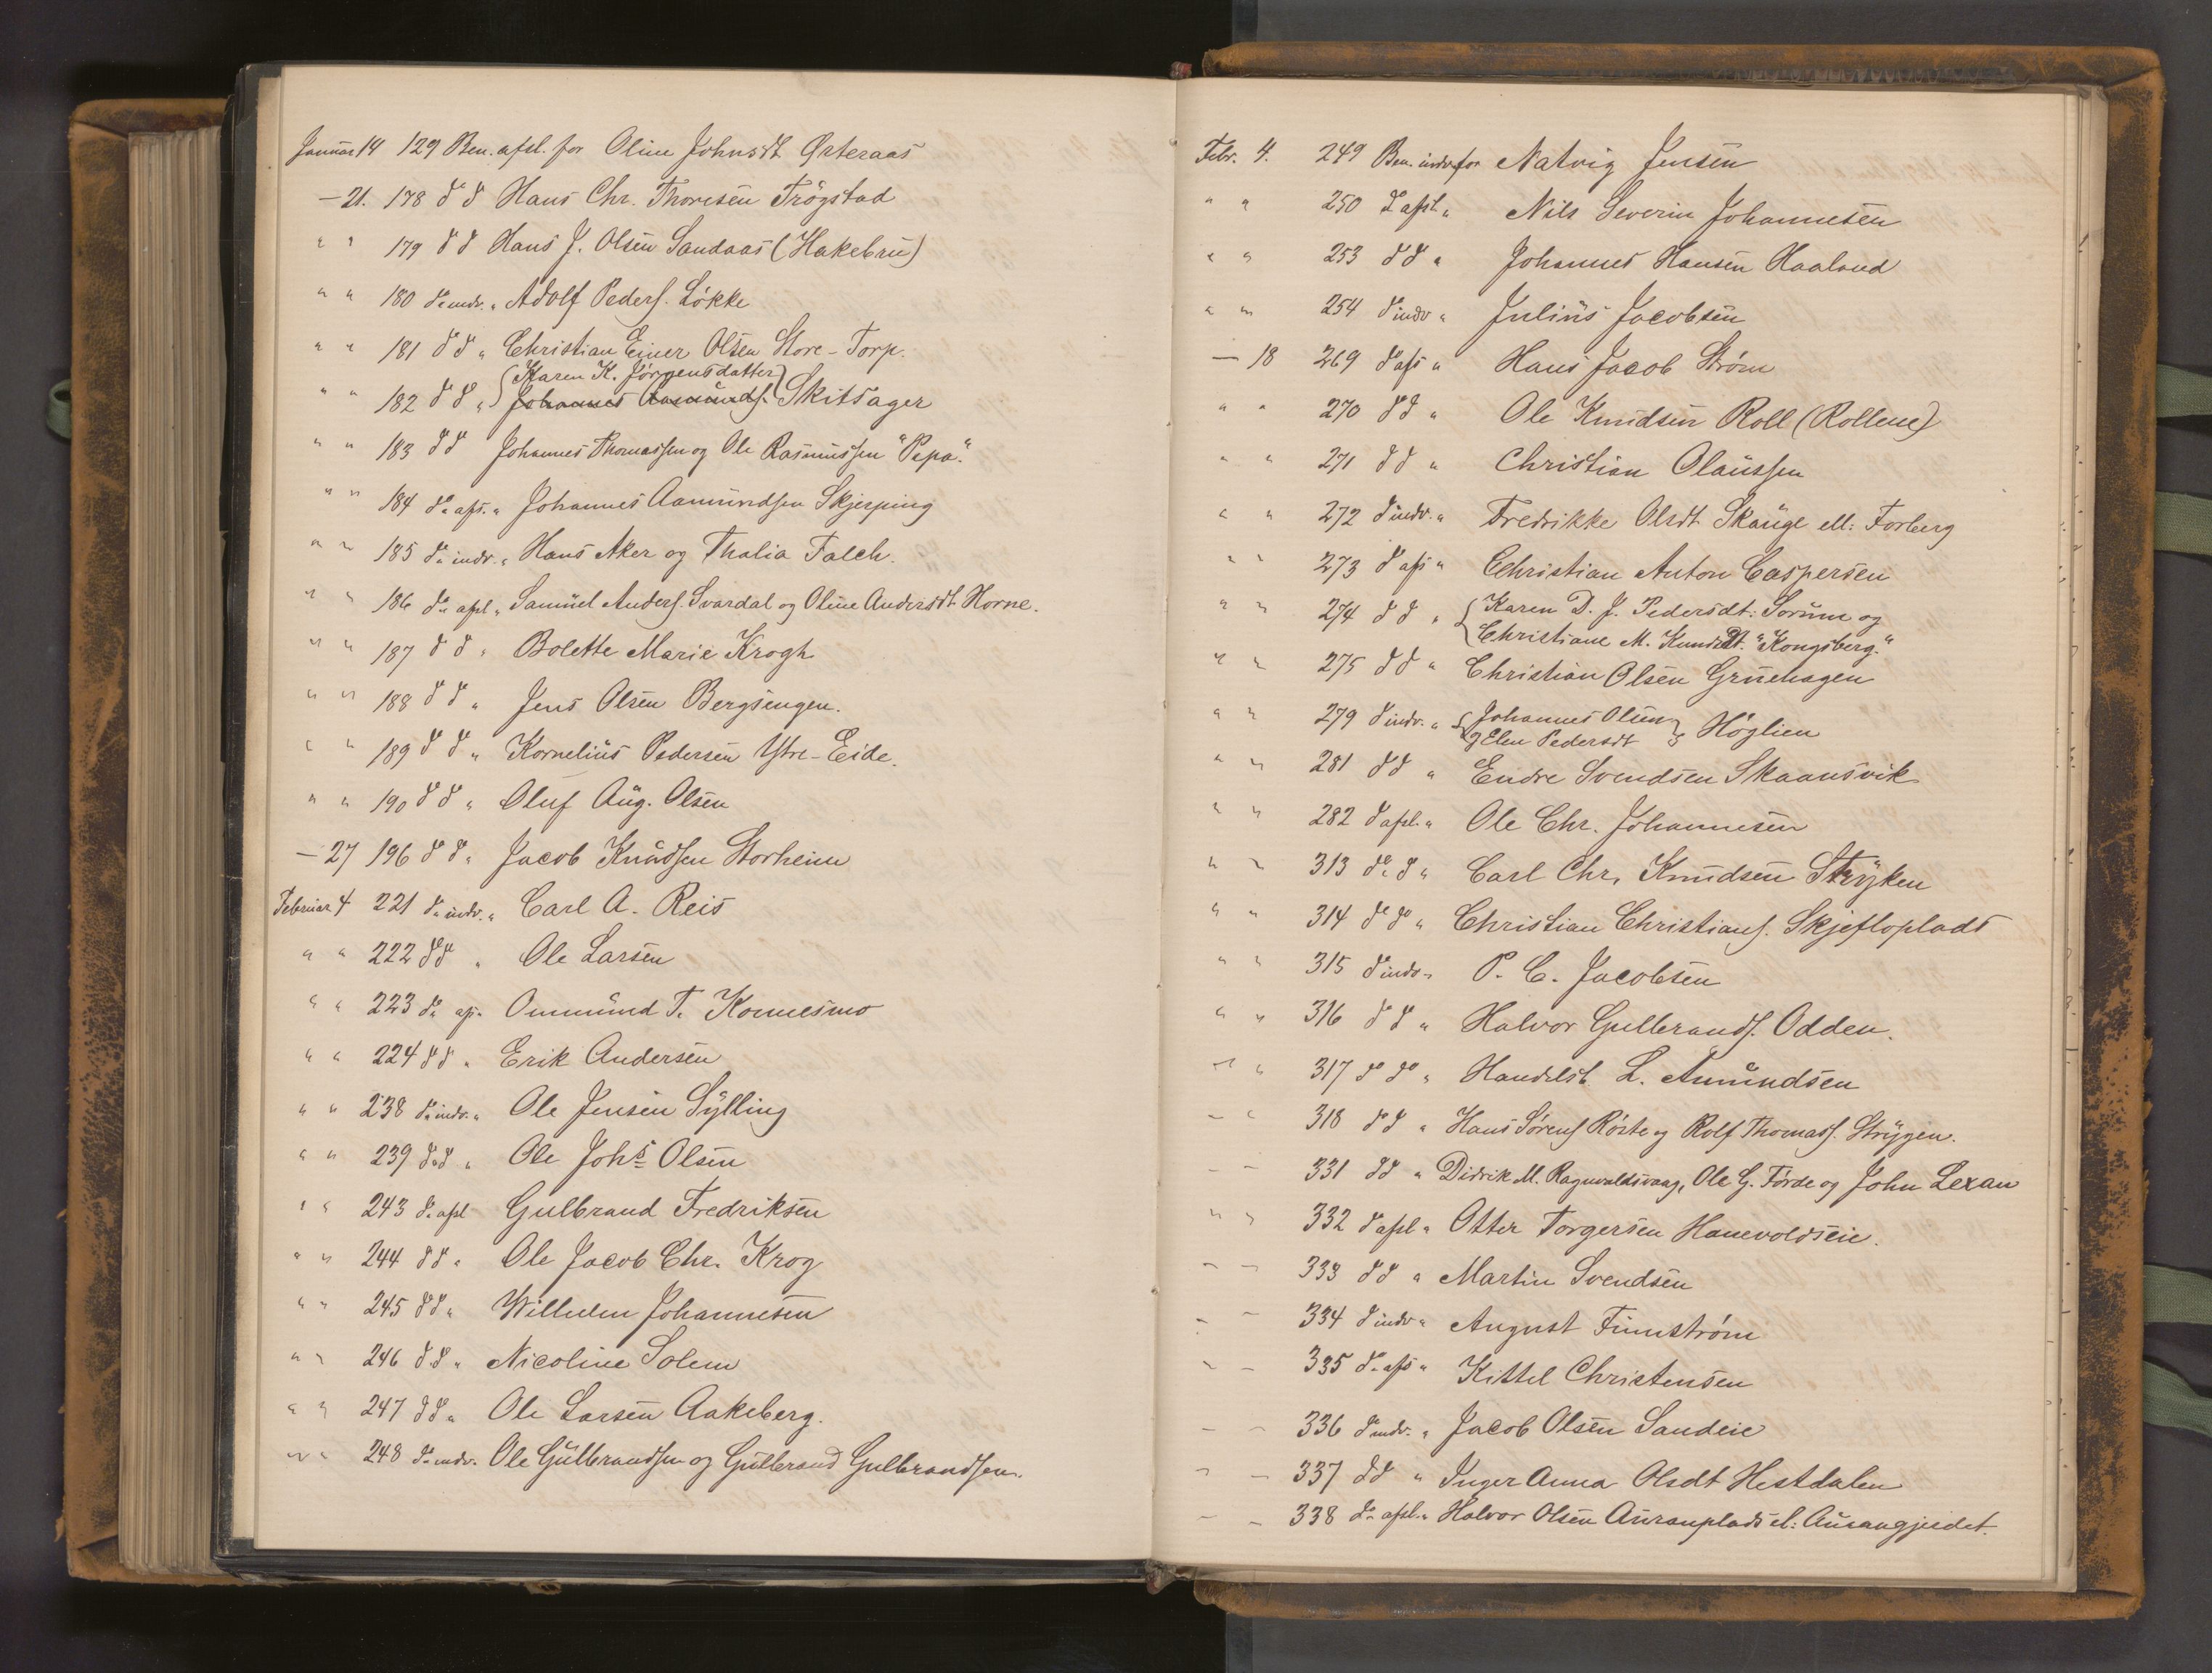 Januar 14 129 Ben. afsl. for Oline Johnsdt Østeraas
— 21. 178 do do Hans Chr. Thoresen Trögstad
" " 179 do do Hans J. Olsen Sandaas (Hakebru)
" " 180 do indv. " Adolf Peders. Lökke
" " 181 do do " Christian Einer Olsen Store-Torp.
{Karen K. Jörgensdatter}
" " 182 do do " Johannes Aamunds. Skitsager
" " 183 do do Johannes Thomassen og Ole Rasmussen "Pepa".
" " 184 do afs. " Johannes Aamundsen Skjerping
" " 185 do indv. " Hans Aker og Thalia Falch.
" " 186 do afsl " Samuel Anders. Svardal og Oline Andersdt Horne.
" " 187 do do " Bolette Marie Krogh
" " 188 do do " Jens Olsen Bergsengen.
" " 189 do do " Kornelius Pedersen Ytre-Eide.
" " 190 do do " Oluf Aug. Olsen
— 27 196 do do " Jacob Knudsen Storheim
Februar 4 221 do indv. " Carl A. Reis
" " 222 do do " Ole Larsen
" " 223 do af. " Ommund T. Konnesmo
" " 224 do do " Erik Andersen
" " 238 do indv. " Ole Jensen Sylling
" " 239 do do " Ole Johs Olsen
" " 243 do afsl Gulbrand Fredriksen
" " 244 do do " Ole Jacob Chr. Krog
" " 245 do do " Wilhelm Johannesen
" " 246 do do " Nicoline Solem
" " 247 do do " Ole Larsen Aakeberg.
" " 248 do indv. Ole Gulbrandsen og Gulbrand Gulbrandsen.
Febr. 4. 249 Ben. indv. for Natvig Jensen
" " 250 do afsl. " Nils Severin Johannesen
" " 253 do do " Johannes Hansen Haaland
" " 254 do indv " Julius Jacobsen
— 18 269 do afs " Hans Jacob Strøm
" " 270 do do " Ole Knudsen Roll (Rollene)
" " 271 do do " Christian Olaussen
" " 272 do indv. " Fredrikke Olsdt Skauge ell: Forberg
" " 273 do afs " Christian Anton Caspersen
" " 274 do do " {Karen D. J. Pedersdt: Sorum og
Christiane M. Knudsdt. "Kongsberg."
" " 275 do do " Christian Olsen Gruehagen
" " 279 do indv. " {Johannes Olsen
og Elen Pedersdt} Höglien
" " 281 do do " Endre Svendsen Skaansvik
" " 282 do afsl. " Ole Chr. Johannesen
" " 313 do do " Carl Chr. Knudsen Stryken
" " 314 do do " Christian Christians. Skjefloplads
" " 315 do indv. " P. C. Jacobsen
" " 316 do do " Halvor Gulbrands. Odden.
" " 317 do do " Handelsb. L. Amundsen
" " 318 do do " Hans Sørens Röste og Rolf Thomass. Strygen.
" " 331 do do " Didrik M. Ragnvaldsvaag, Ole G. Förde og John Lexau
" " 332 do afsl " Otter Torgersen Hanevoldseie.
" " 333 do do " Martin Svendsen
" " 334 do indv " August Finnström
" " 335 do afs " Kittel Christensen
" " 336 do indv. " Jacob Olsen Sandeie
" " 337 do do " Inger Anna Olsdt Hestdalen
" " 338 do afsl. " Halvor Olsen Auranplads el: Aurangjerdet.